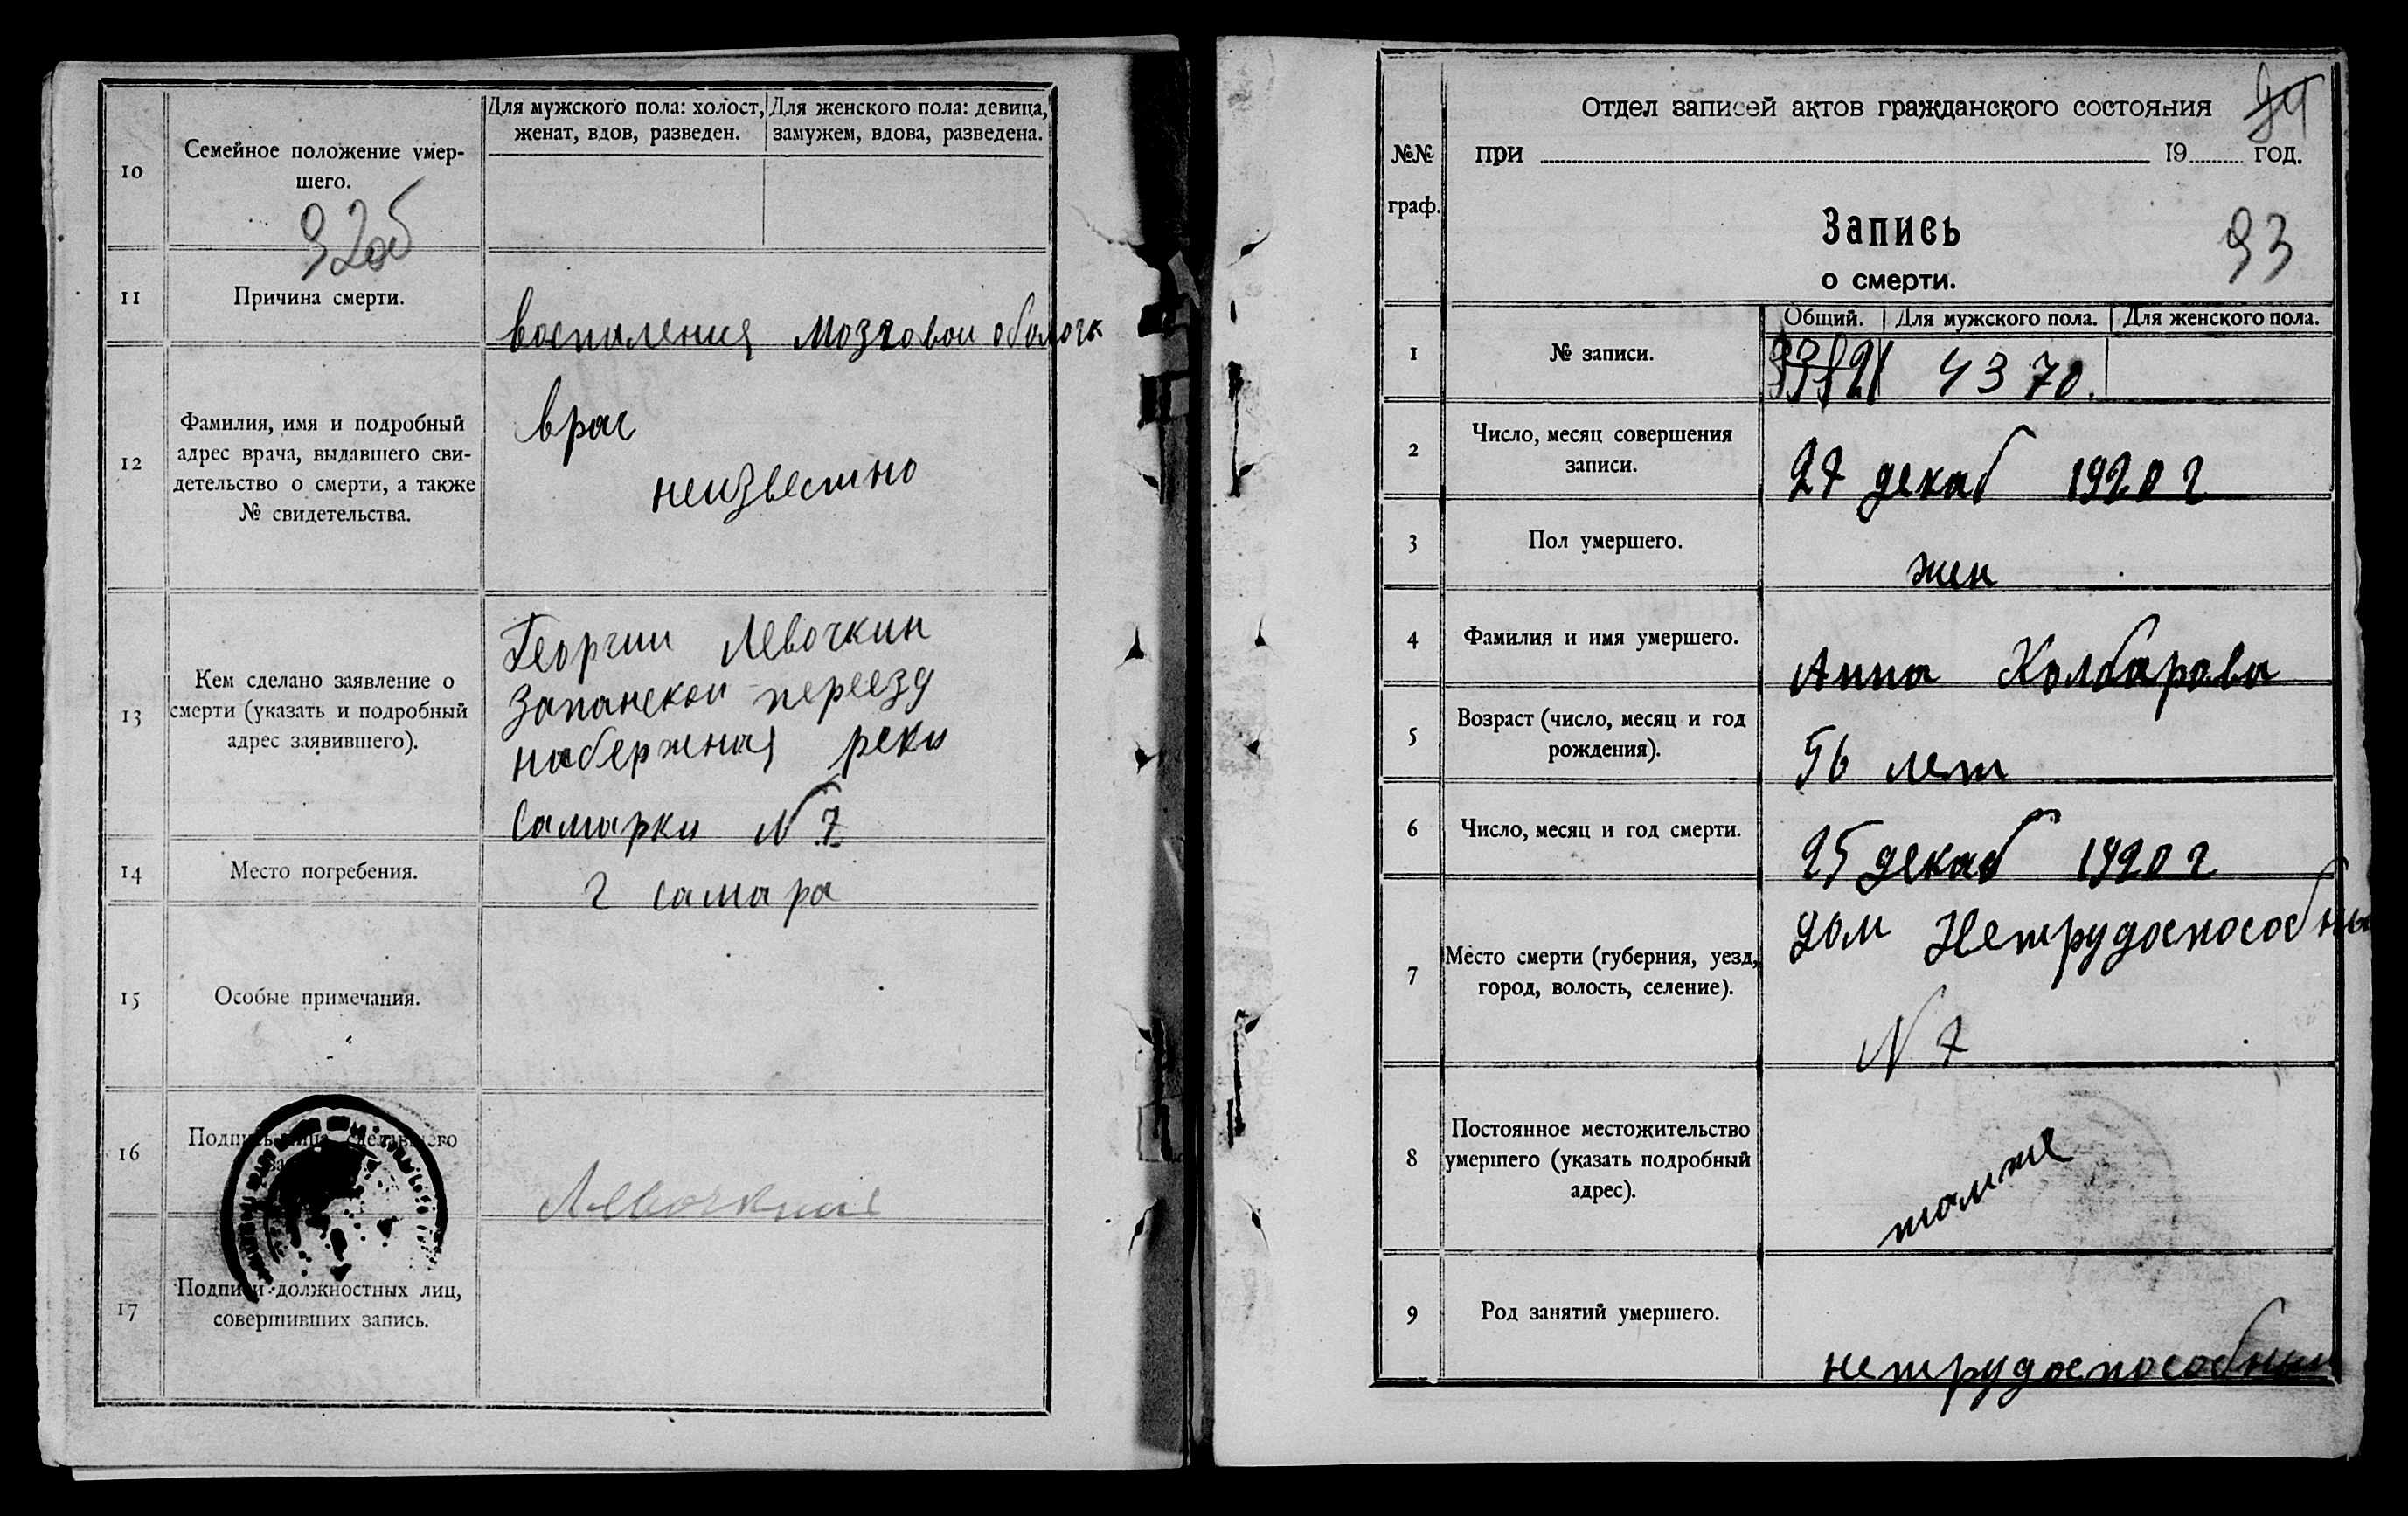 10
Семейное положение умер-
шего.
Для мужского пола: холост,
женат, вдов, разведен.
Для женского пола: девица,
замужем, вдова, разведена.
92об
11
Причина смерти.
воспаления мозговои оболочк
12
Фамилия, имя и подробный
адрес врача, выдавшего сви-
детельство о смерти, а также
№ свидетельства.
врач
неизвестно
13
Кем сделано заявление о
смерти (указать и подробный
адрес заявившего).
Георгии Левочкин
Запанскои переезд
набержная реки
Самарки N 7
14
Место погребения.
г Самара
15
Особые примечания.
16
Подпись лица, сделавшего
Левочкин
17
Подписи должностных лиц,
совершивших запись.
№№
граф.
Отдел записей актов гражданского состояния
при 19 год.
Запись
о смерти.
93
Общий. Для мужского пола. Для женского пола.
1
№ записи.
4370.
2
Число, месяц совершения
записи.
27 декаб 1920 г
3
Пол умершего.
жен
4
Фамилия и имя умершего.
Анна Колбарова
5
Возраст (число, месяц и год
рождения).
56 лет
6
Число, месяц и год смерти.
25 декаб 1920 г
7
Место смерти (губерния, уезд,
город, волость, селение).
дом Нетрудоспособны
N 7
8
Постоянное местожительство
умершего (указать подробный
адрес).
тамже
9
Род занятий умершего.
нетрудоспособным